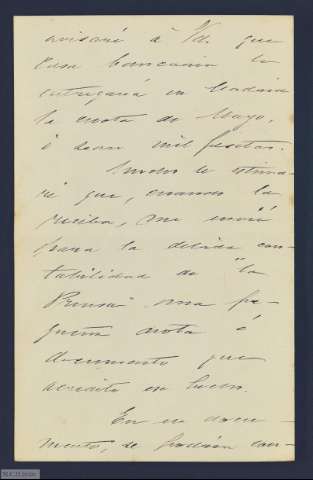 avisaré á Vd. que
casa bancaria le
entregará en Madrid
la cuota de Mayo,
ó sean mil pesetas.
Mucho le estima-
ré que, cuando la
reciba, me envíe
para la debida con-
tabilidad de "La
Prensa" una pe-
queña nota ó
documento que
acredite su
En ese docu-
mento, se podrían con-